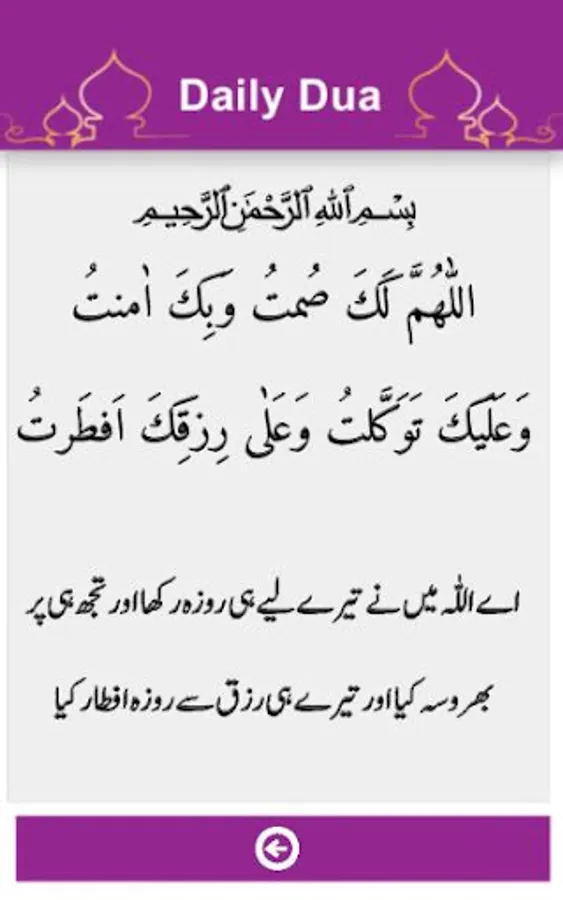 Daily Dua
بِسْمِ ٱللهِ ٱلرَّحْمَٰنِ ٱلرَّحِيمِ
اللّٰهُمَّ لَكَ صُمتُ وَبِكَ اٰمنتُ
وَعَلَيكَ تَوَكَّلتُ وَعَلٰى رِزقِكَ اَفطَرتُ
اے اللہ میں نے تیرے لیے ہی روزہ رکھا اور تجھ ہی پر
بھروسہ کیا اور تیرے ہی رزق سے روزہ افطار کیا